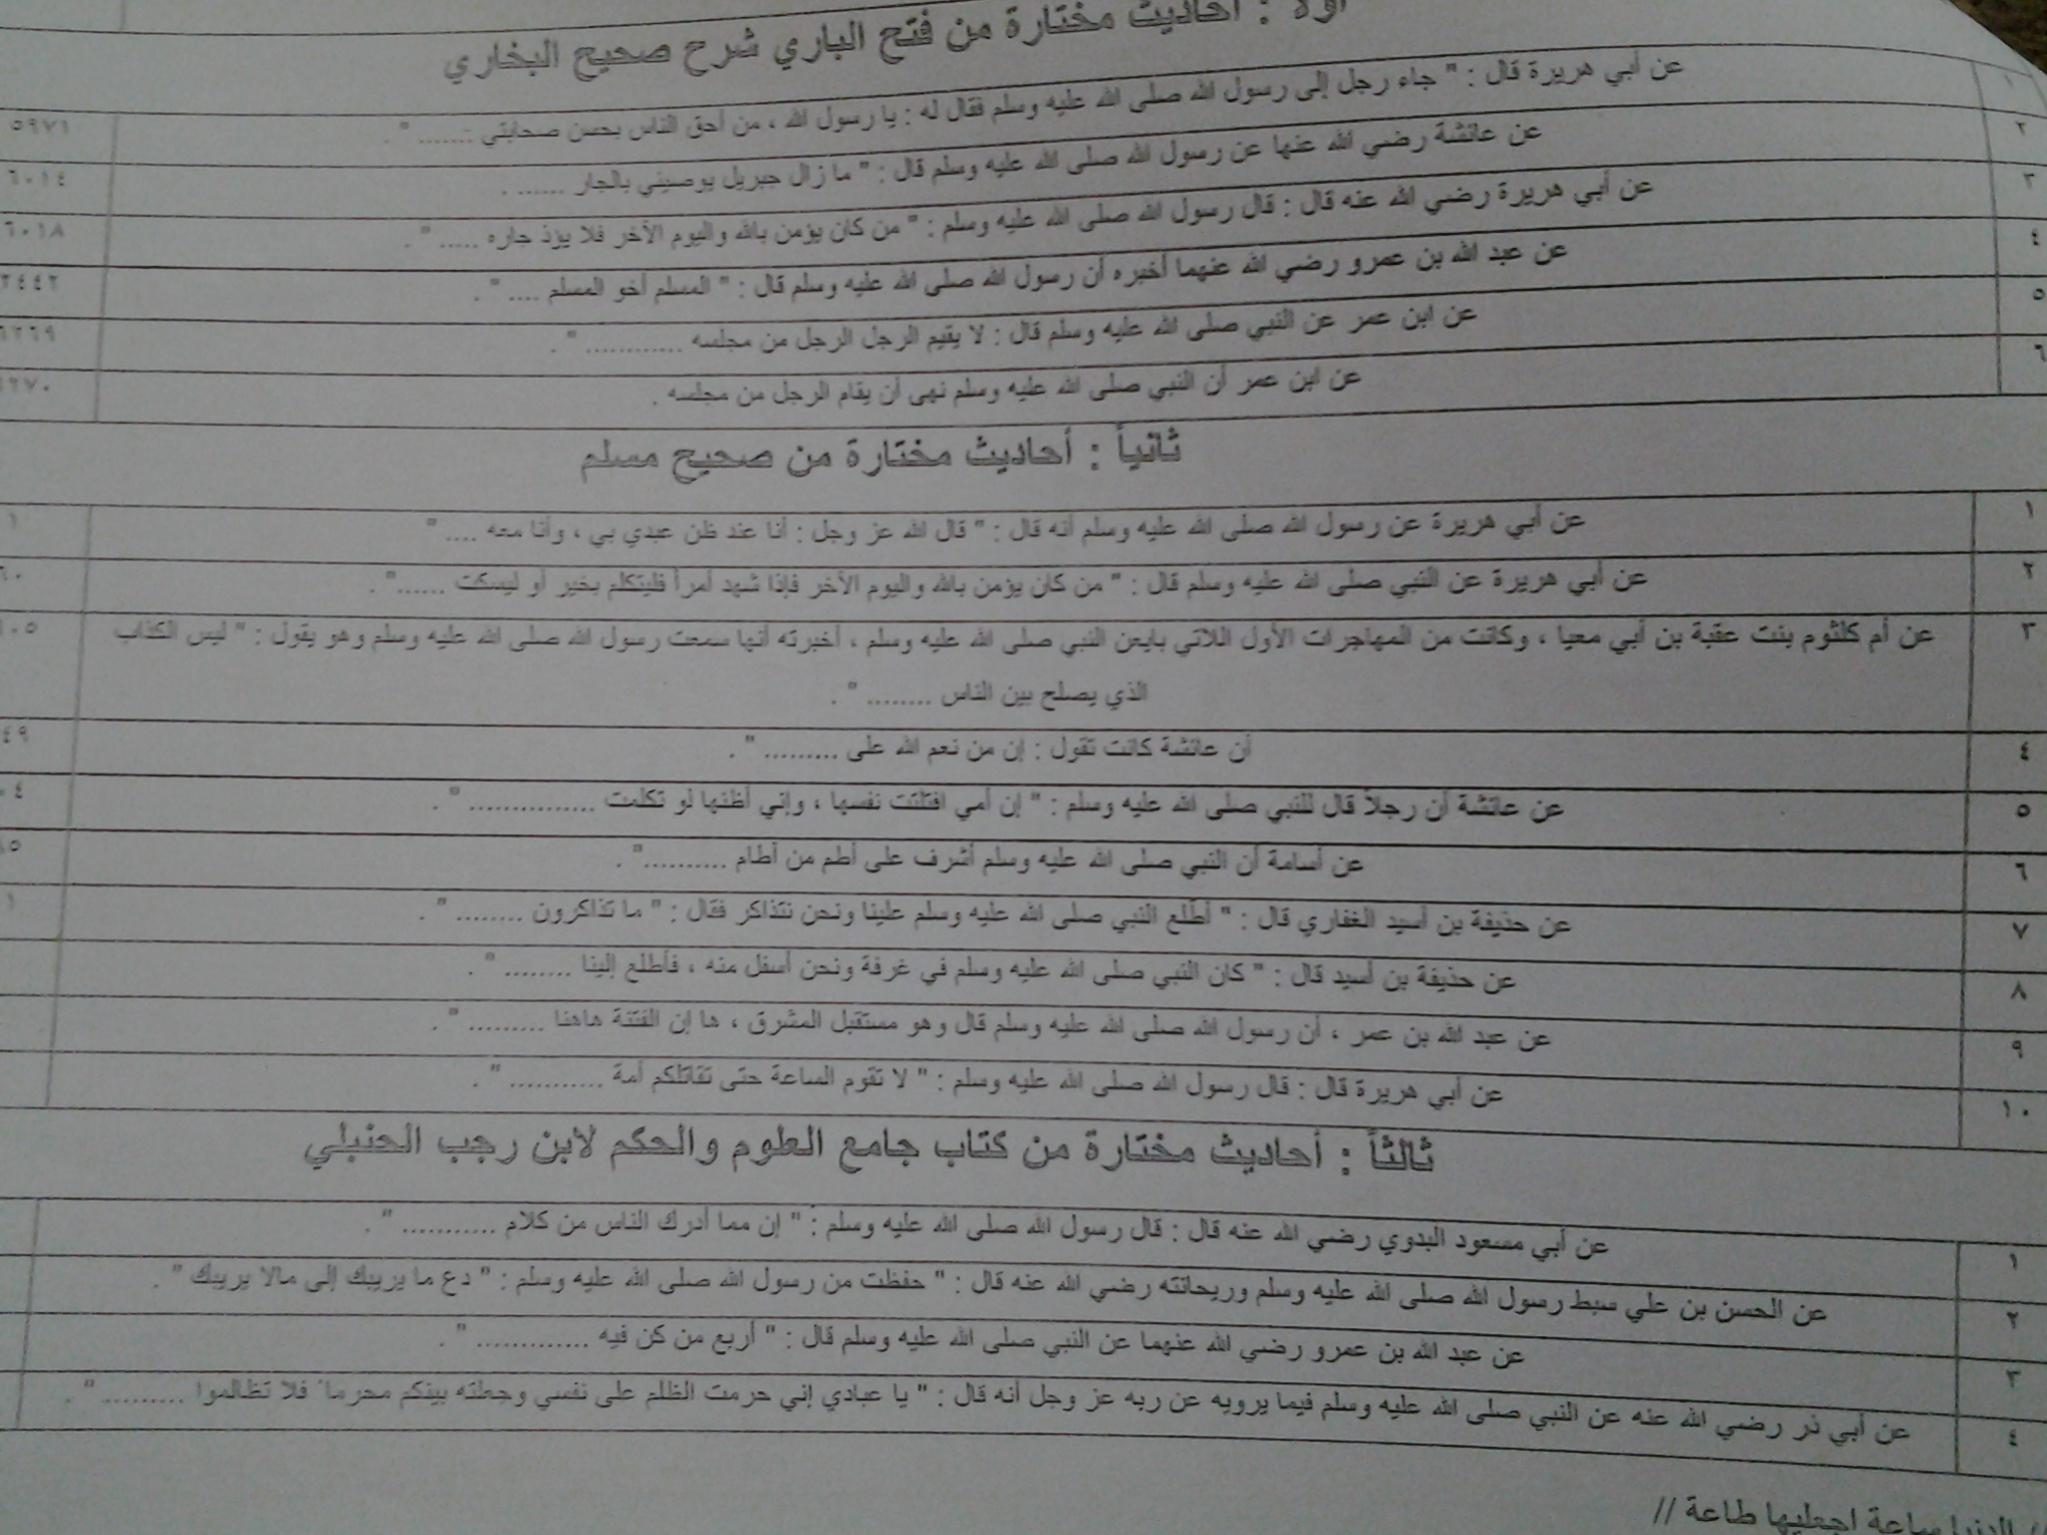 أولاً : أحاديث مختارة من فتح الباري شرح صحيح البخاري
١ عن أبي هريرة قال : " جاء رجل إلى رسول الله صلى الله عليه وسلم فقال له : يا رسول الله ، من أحق الناس بحسن صحابتي ....... " . ٥٩٧١
٢ عن عائشة رضي الله عنها عن رسول الله صلى الله عليه وسلم قال : " ما زال جبريل يوصيني بالجار ...... . ٦٠١٤
٣ عن أبي هريرة رضي الله عنه قال : قال رسول الله صلى الله عليه وسلم : " من كان يؤمن بالله واليوم الآخر فلا يؤذ جاره ..... " . ٦٠١٨
٤ عن عبد الله بن عمرو رضي الله عنهما أخبره أن رسول الله صلى الله عليه وسلم قال : " المسلم أخو المسلم .... " . ٢٤٤٢
٥ عن ابن عمر عن النبي صلى الله عليه وسلم قال : لا يقيم الرجل الرجل من مجلسه ............ " . ٦٢٦٩
٦ عن ابن عمر أن النبي صلى الله عليه وسلم نهى أن يقام الرجل من مجلسه . ٦٢٧٠
ثانياً : أحاديث مختارة من صحيح مسلم
١ عن أبي هريرة عن رسول الله صلى الله عليه وسلم أنه قال : " قال الله عز وجل : أنا عند ظن عبدي بي ، وأنا معه .... " ١
٢ عن أبي هريرة عن النبي صلى الله عليه وسلم قال : " من كان يؤمن بالله واليوم الآخر فإذا شهد أمراً فليتكلم بخير أو ليسكت ......" . ٦٠
٣ عن أم كلثوم بنت عقبة بن أبي معيا ، وكانت من المهاجرات الأول اللاتي بايعن النبي صلى الله عليه وسلم ، أخبرته أنها سمعت رسول الله صلى الله عليه وسلم وهو يقول : " ليس الكذاب ١٠٥
الذي يصلح بين الناس ........ " .
٤ أن عائشة كانت تقول : إن من نعم الله على ......... " . ٤٩
٥ عن عائشة أن رجلاً قال للنبي صلى الله عليه وسلم : " إن أمي افتلتت نفسها ، وإني أظنها لو تكلمت ............... " . ٠٤
٦ عن أسامة أن النبي صلى الله عليه وسلم أشرف على أطم من أطام .........." . ٨٥
٧ عن حذيفة بن أسيد الغفاري قال : " أطّلع النبي صلى الله عليه وسلم علينا ونحن نتذاكر فقال : " ما تذاكرون ........ " . ١
٨ عن حذيفة بن أسيد قال : " كان النبي صلى الله عليه وسلم في غرفة ونحن أسفل منه ، فأطلع إلينا ........ " .
٩ عن عبد الله بن عمر ، أن رسول الله صلى الله عليه وسلم قال وهو مستقبل المشرق ، ها إن الفتنة هاهنا ......... " .
١٠ عن أبي هريرة قال : قال رسول الله صلى الله عليه وسلم : " لا تقوم الساعة حتى تقاتلكم أمة ........... " .
ثالثاً : أحاديث مختارة من كتاب جامع العلوم والحكم لابن رجب الحنبلي
١ عن أبي مسعود البدوي رضي الله عنه قال : قال رسول الله صلى الله عليه وسلم : " إن مما أدرك الناس من كلام ........... " .
٢ عن الحسن بن علي سبط رسول الله صلى الله عليه وسلم وريحانته رضي الله عنه قال : " حفظت من رسول الله صلى الله عليه وسلم : " دع ما يريبك إلى مالا يريبك " .
٣ عن عبد الله بن عمرو رضي الله عنهما عن النبي صلى الله عليه وسلم قال : " أربع من كن فيه ............. " .
٤ عن أبي ذر رضي الله عنه عن النبي صلى الله عليه وسلم فيما يرويه عن ربه عز وجل أنه قال : " يا عبادي إني حرمت الظلم على نفسي وجعلته بينكم محرماً فلا تظالموا ......... " .
الدنيا ساعة اجعليها طاعة //